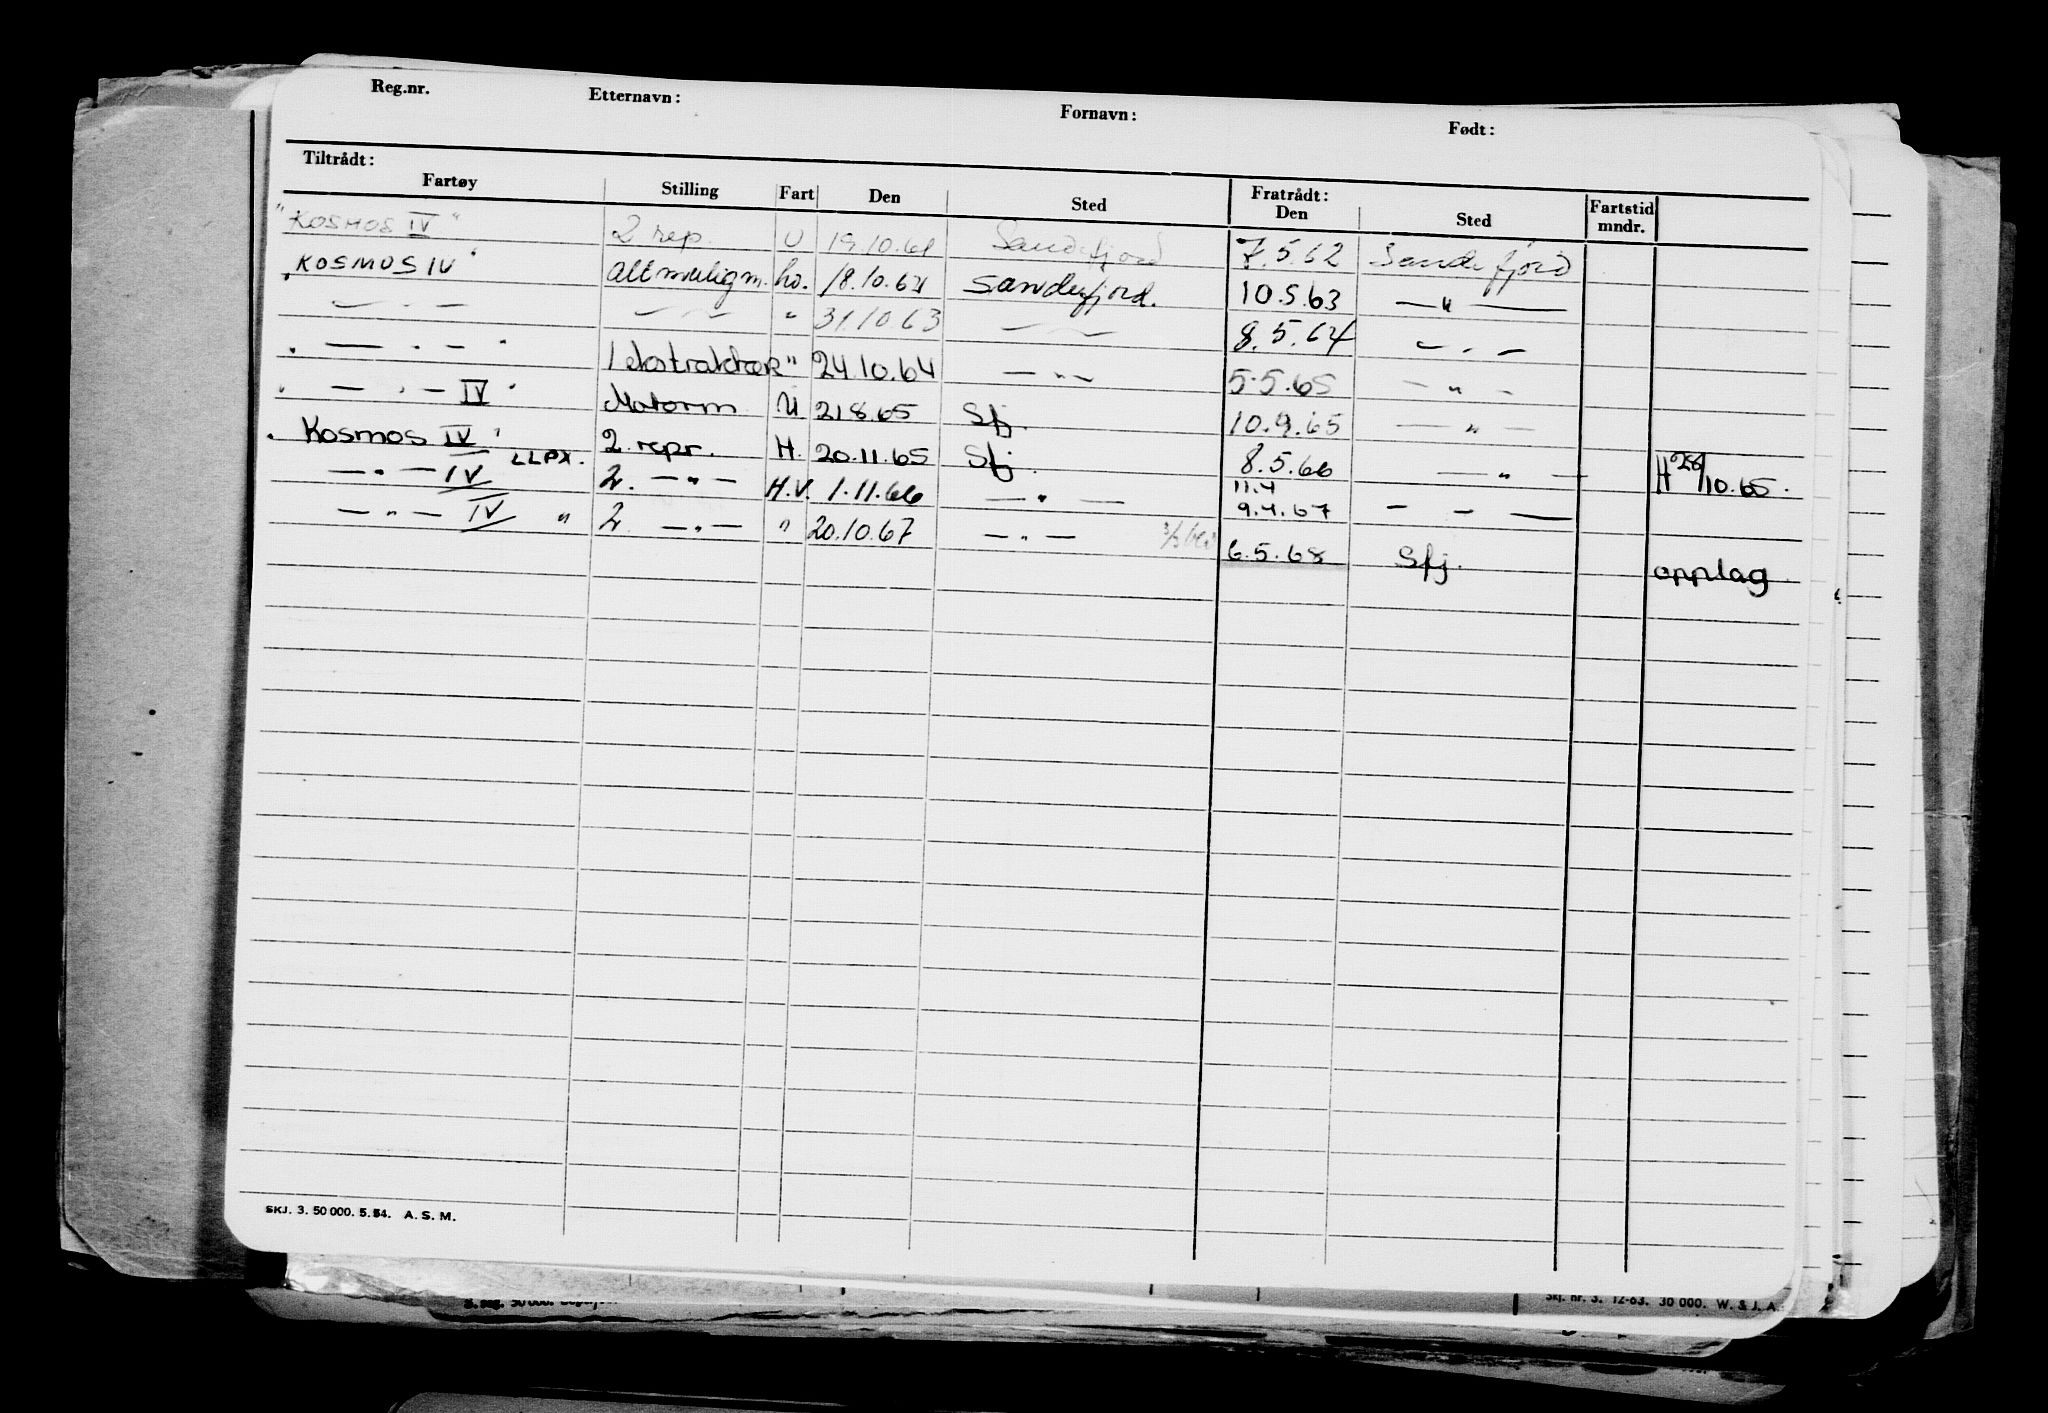 Reg.nr. Etternavn: Fornavn: Født:
Tiltrådt: Fratrådt:
Fartøy Stilling Fart Den Sted Den Sted Fartstid mndr.
"KOSMOS IV" 2 rep. U 19.10.61 Sandefjord 7.5.62 Sandefjord
"KOSMOS IV" altmuligm. ho. 18.10.62 Sandefjord. 10.5.63 — " —
— " — — " — " 31.10.63 — " — 8.5.64 — " —
" — " — " 1 ekstraktkok " 24.10.64 — " — 5.5.65 — " —
" — " — IV " Motorm U 21.8.65 Sfj. 10.9.65 — " —
"Kosmos IV" LLPX. 2. repr. H. 20.11.65 Sfj. 8.5.66 — " — H 28/10.65.
— " — IV 2. — " — H.V. 1.11.66 — " — 11.4 9.4.67 — " —
— " — IV " 2. — " — " 20.10.67 — " — 6.5.68 Sfj. opplag
SKJ. 3. 50 000. 5. 54. A. S. M.
Skj. nr. 3. 12-63. 30 000. W. & J. A.